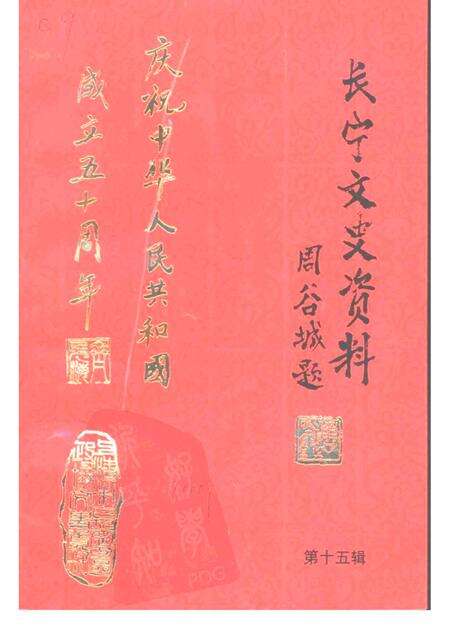 长宁文史资料
周谷城题
庆祝中华人民共和國
成立五十周年
第十五辑
PDG